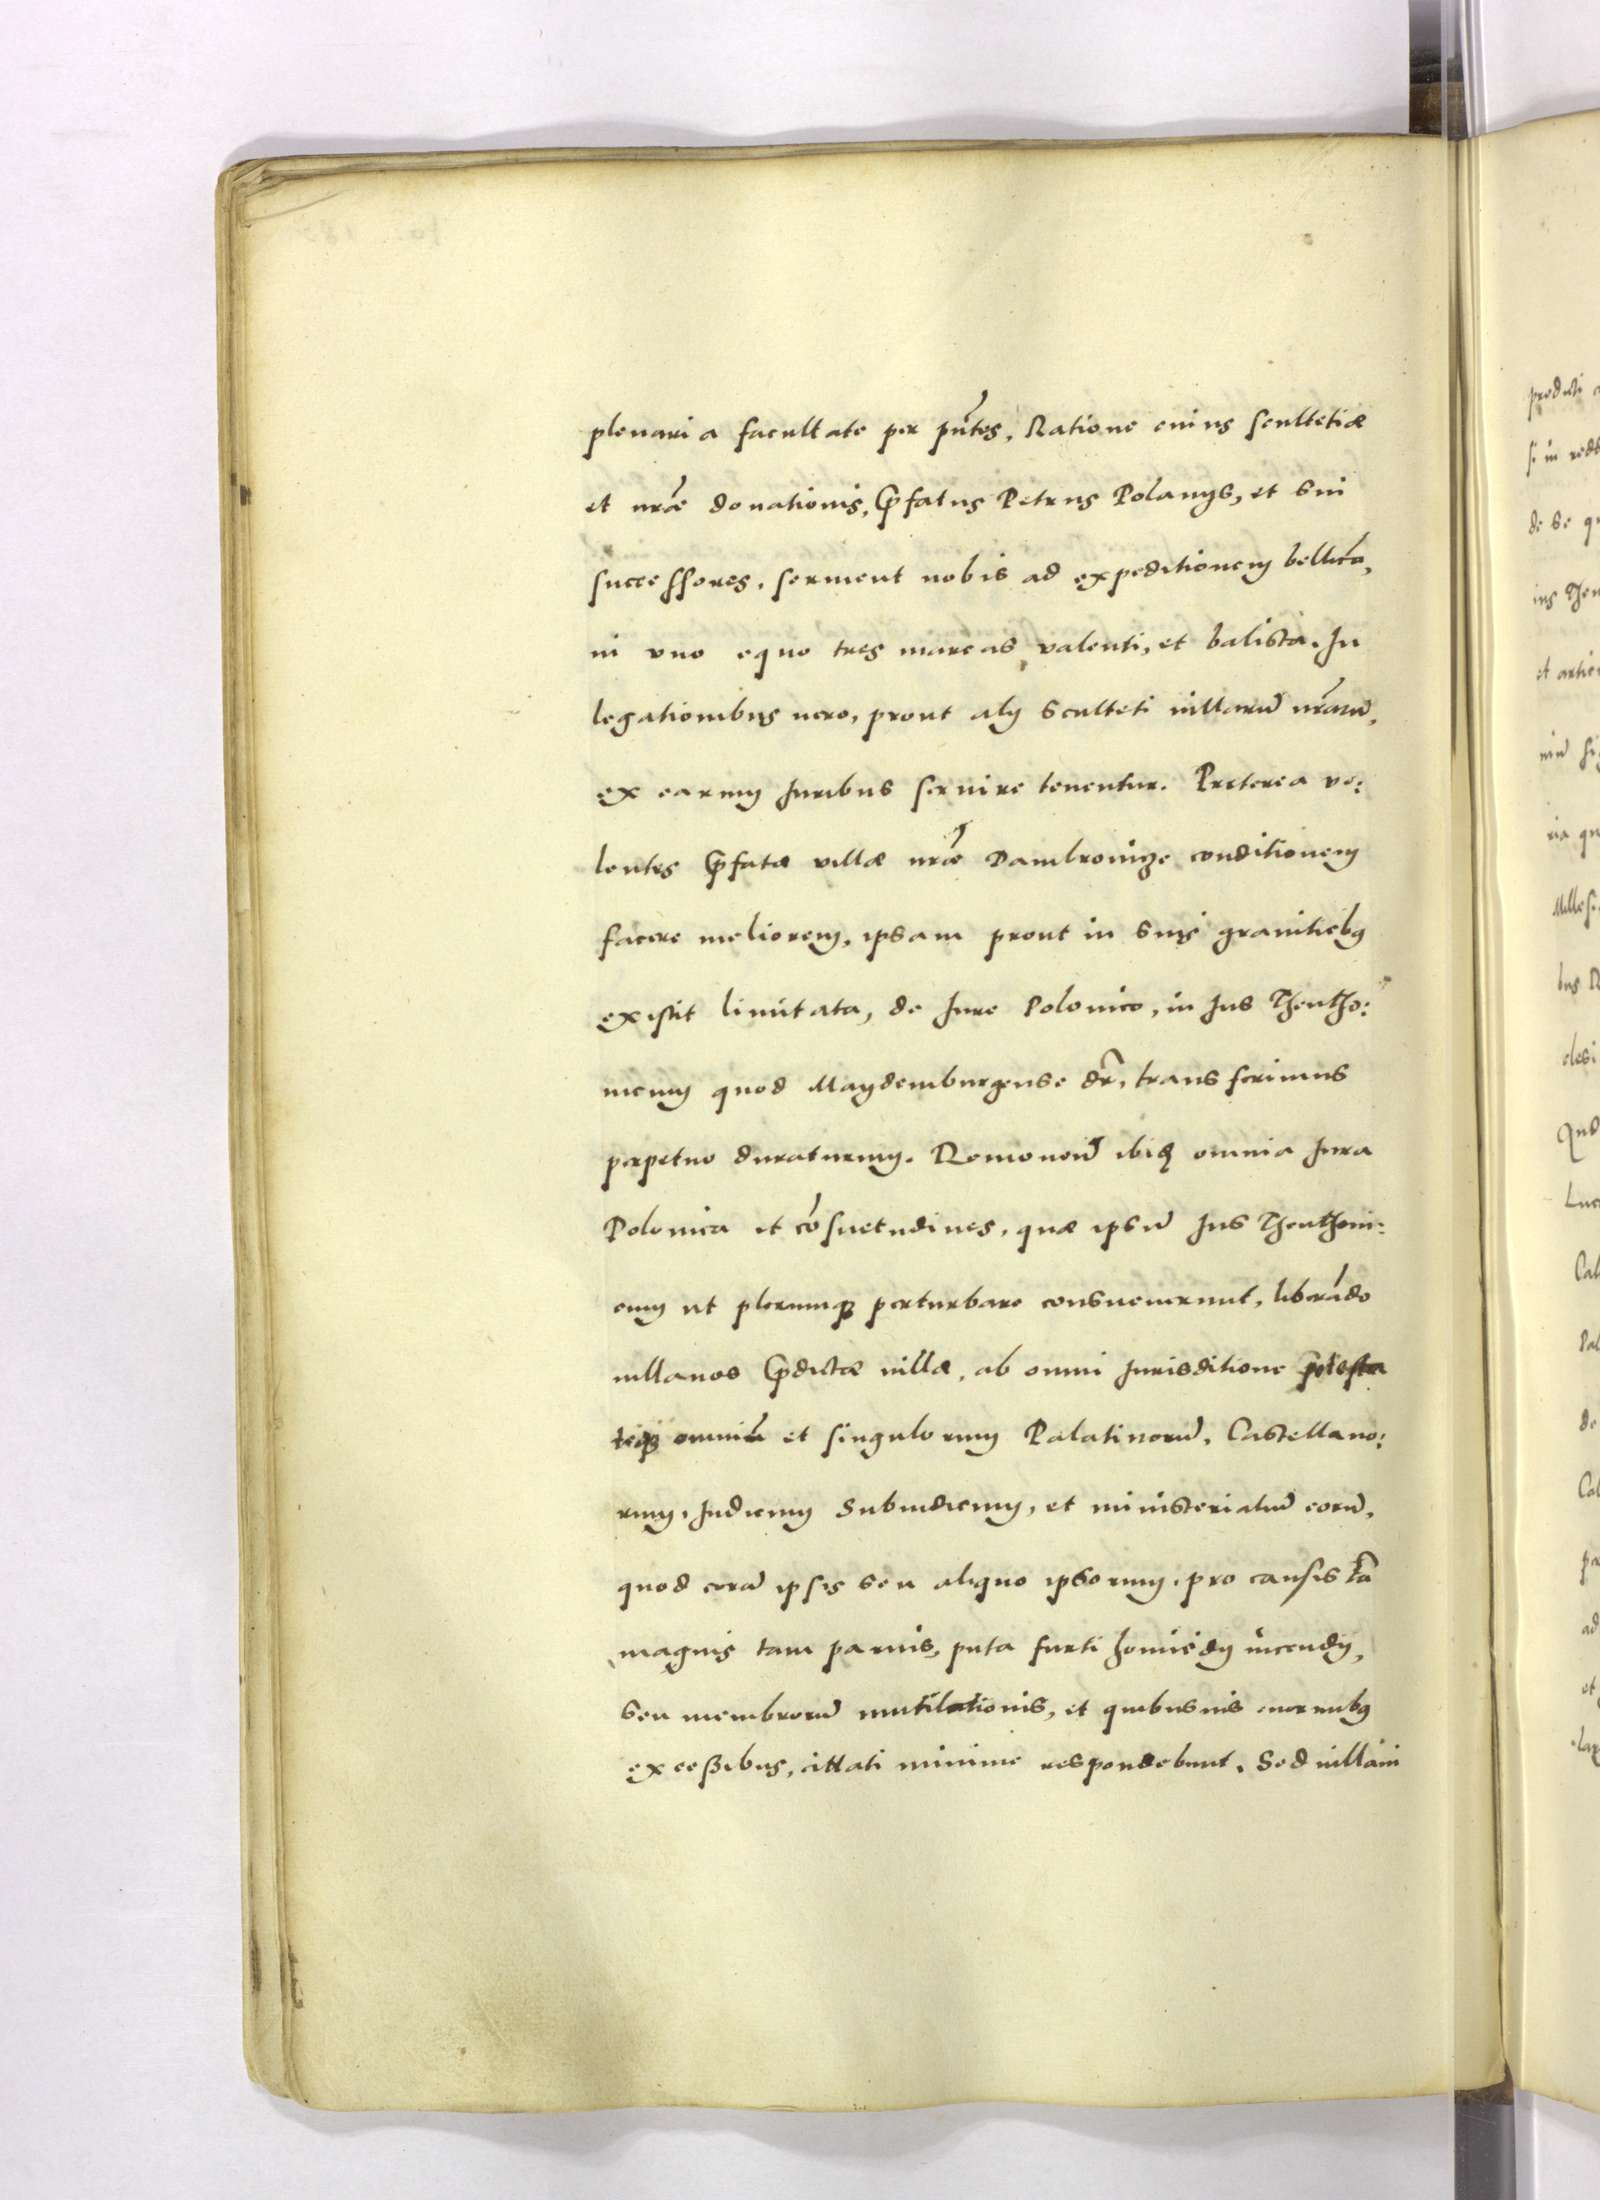 plenaria facultate per pñtes, Ratione cuius scultetiæ
et nr̃æ donationis, Pfatus Petrus Polanÿs, et sui
successores, seruient nobis ad expeditionem bellicã,
in vno equo tres marcas valenti, et balista. In
legationibus uero, prout alÿ sculteti uillarũ nr̃arũ,
ex earum Juribus seruire tenentur. Preterea vo:
lentes Pfatæ villæ nr̃æ Dambrouicze conditionem
facere meliorem, ipsam prout in suis granitiebꝯ
existit limitata, de Jure Polonico, in Jus Theutho:
nicum quod Maydemburgense dr̃, transferimus
perpetuo duraturum. Remouen̄ ibiꝫ omnia Jura
Polonica et cõsuetudines, quæ ipsũ Jus Theuthoni:
cum ut plerumqꝫ perturbare consueuerunt, liberãdo
uillanos Pdictæ uillæ, ab omni Jurisditione potesta
teqꝫ omniũ et singulorum Palatinorũ, Castellano:
rum, Judicum Subiudicum, et ministerialiũ eorũ,
quod corã ipsis seu aliquo ipsorum, pro causis tã
magnis tam paruis, puta furti homicidÿ incendÿ,
seu membrorũ mutilationis, et quibusuis enormibꝯ
excessibus, cittati minime respondebunt. Sed uillani
prodicti